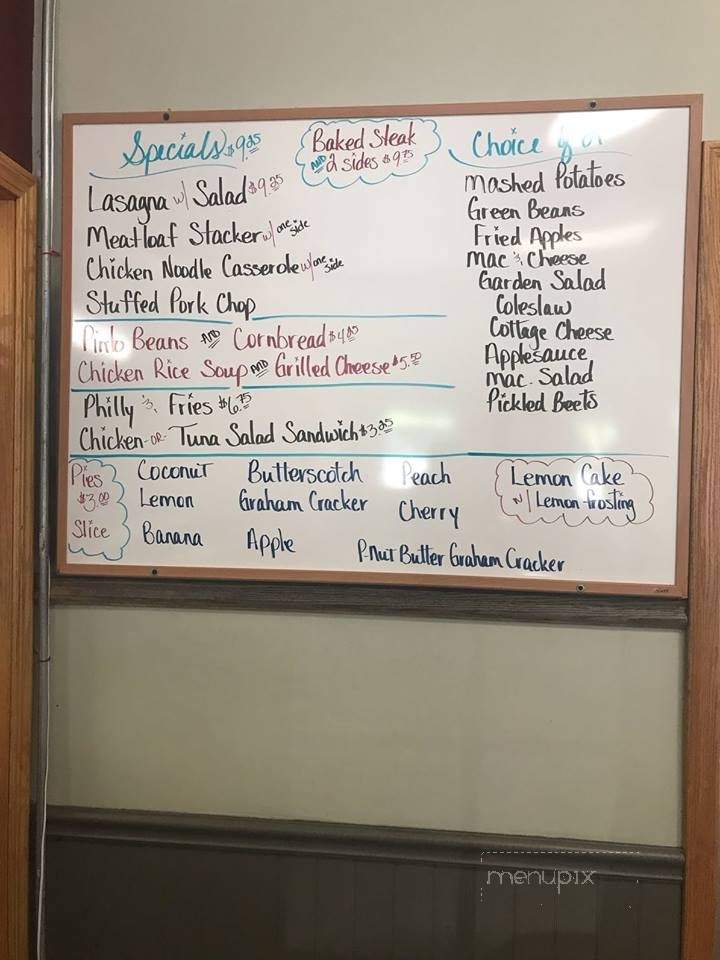 Specials $9.25
Lasagna w/ Salad $9.25
Meatloaf Stacker w/ one side
Chicken Noodle Casserole w/ one side
Stuffed Pork Chop
Baked Steak
AND 2 sides $9.75
Choice of
Mashed Potatoes
Green Beans
Fried Apples
Mac & Cheese
Garden Salad
Coleslaw
Cottage Cheese
Applesauce
Mac. Salad
Pickled Beets
Pinto Beans AND Cornbread
Chicken Rice Soup AND Grilled Cheese $5.50
Philly & Fries $6.75
Chicken -or- Tuna Salad Sandwich $3.25
Pies
$3.00
Slice
Coconut Butterscotch Peach
Lemon Graham Cracker Cherry
Banana Apple P-Nut Butter Graham Cracker
Lemon Cake
w/ Lemon frosting
menupix